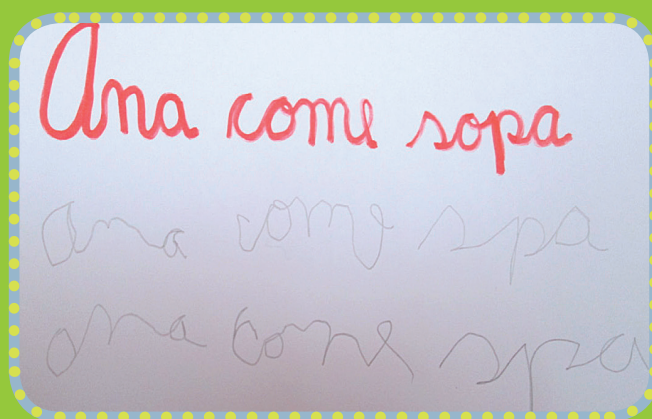 Ana come sopa
ana come spa
ana come spa